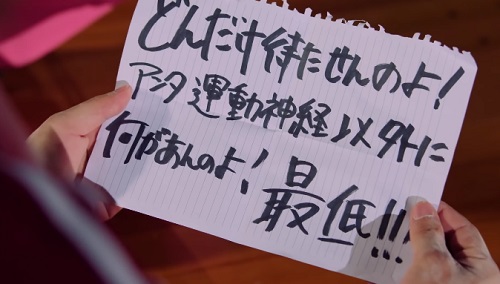 どんだけ待たせんのよ!
アンタ運動神経以外に
何があんのよ!最低!!!